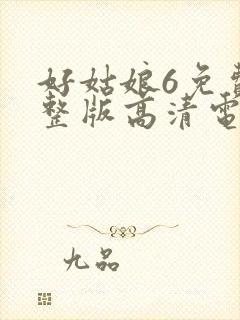 好姑娘6免費
整版高清電
九品